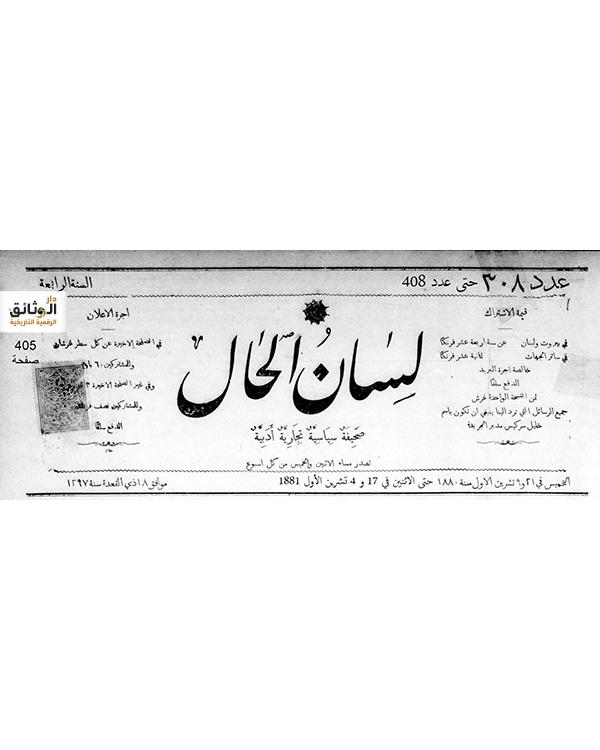 عدد ٣٠٨ حتى عدد 408
السنة الرابعة
دار
الوثائق
الرقمية التاريخية
405
صفحة
قيمة الاشتراك
في بيروت ولبنان عن سنة اربعة عشر فرنكًا
في سائر الجهات ثمانية عشر فرنكًا
خالصة اجرة البريد
الدفع سلفًا
ثمن النسخة الواحدة غرش
جميع الرسائل التي ترد الينا ينبغي ان تكون باسم
خليل سركيس مدير الجريدة
لسان الحال
صحيفة سياسية تجارية أدبية
تصدر مساء الاثنين والخميس من كل اسبوع
اجرة الاعلان
في الصفحة الاخيرة عن كل سطر غرشان
وللمشتركين ٦٠
وفي غير الصفحة الاخيرة ٣
وللمشتركين نصف
الدفع سلفًا
الخميس في ٢١ و٩ تشرين الاول سنة ١٨٨٠ حتى الاثنين في 17 و 4 تشرين الأول 1881
موافق ١٨ ذي القعدة سنة ١٢٩٧